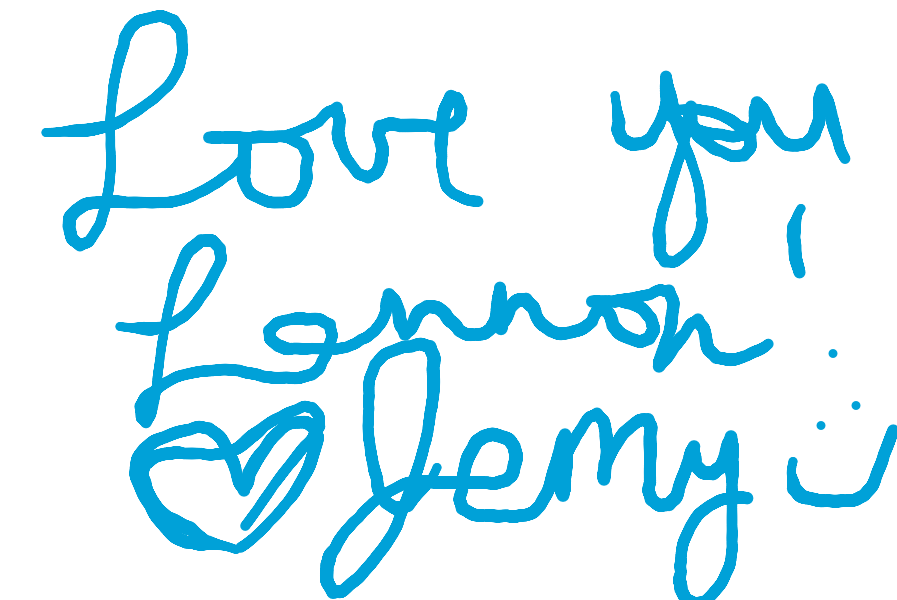 Love you
Lennon!
♡ Jemmy :)